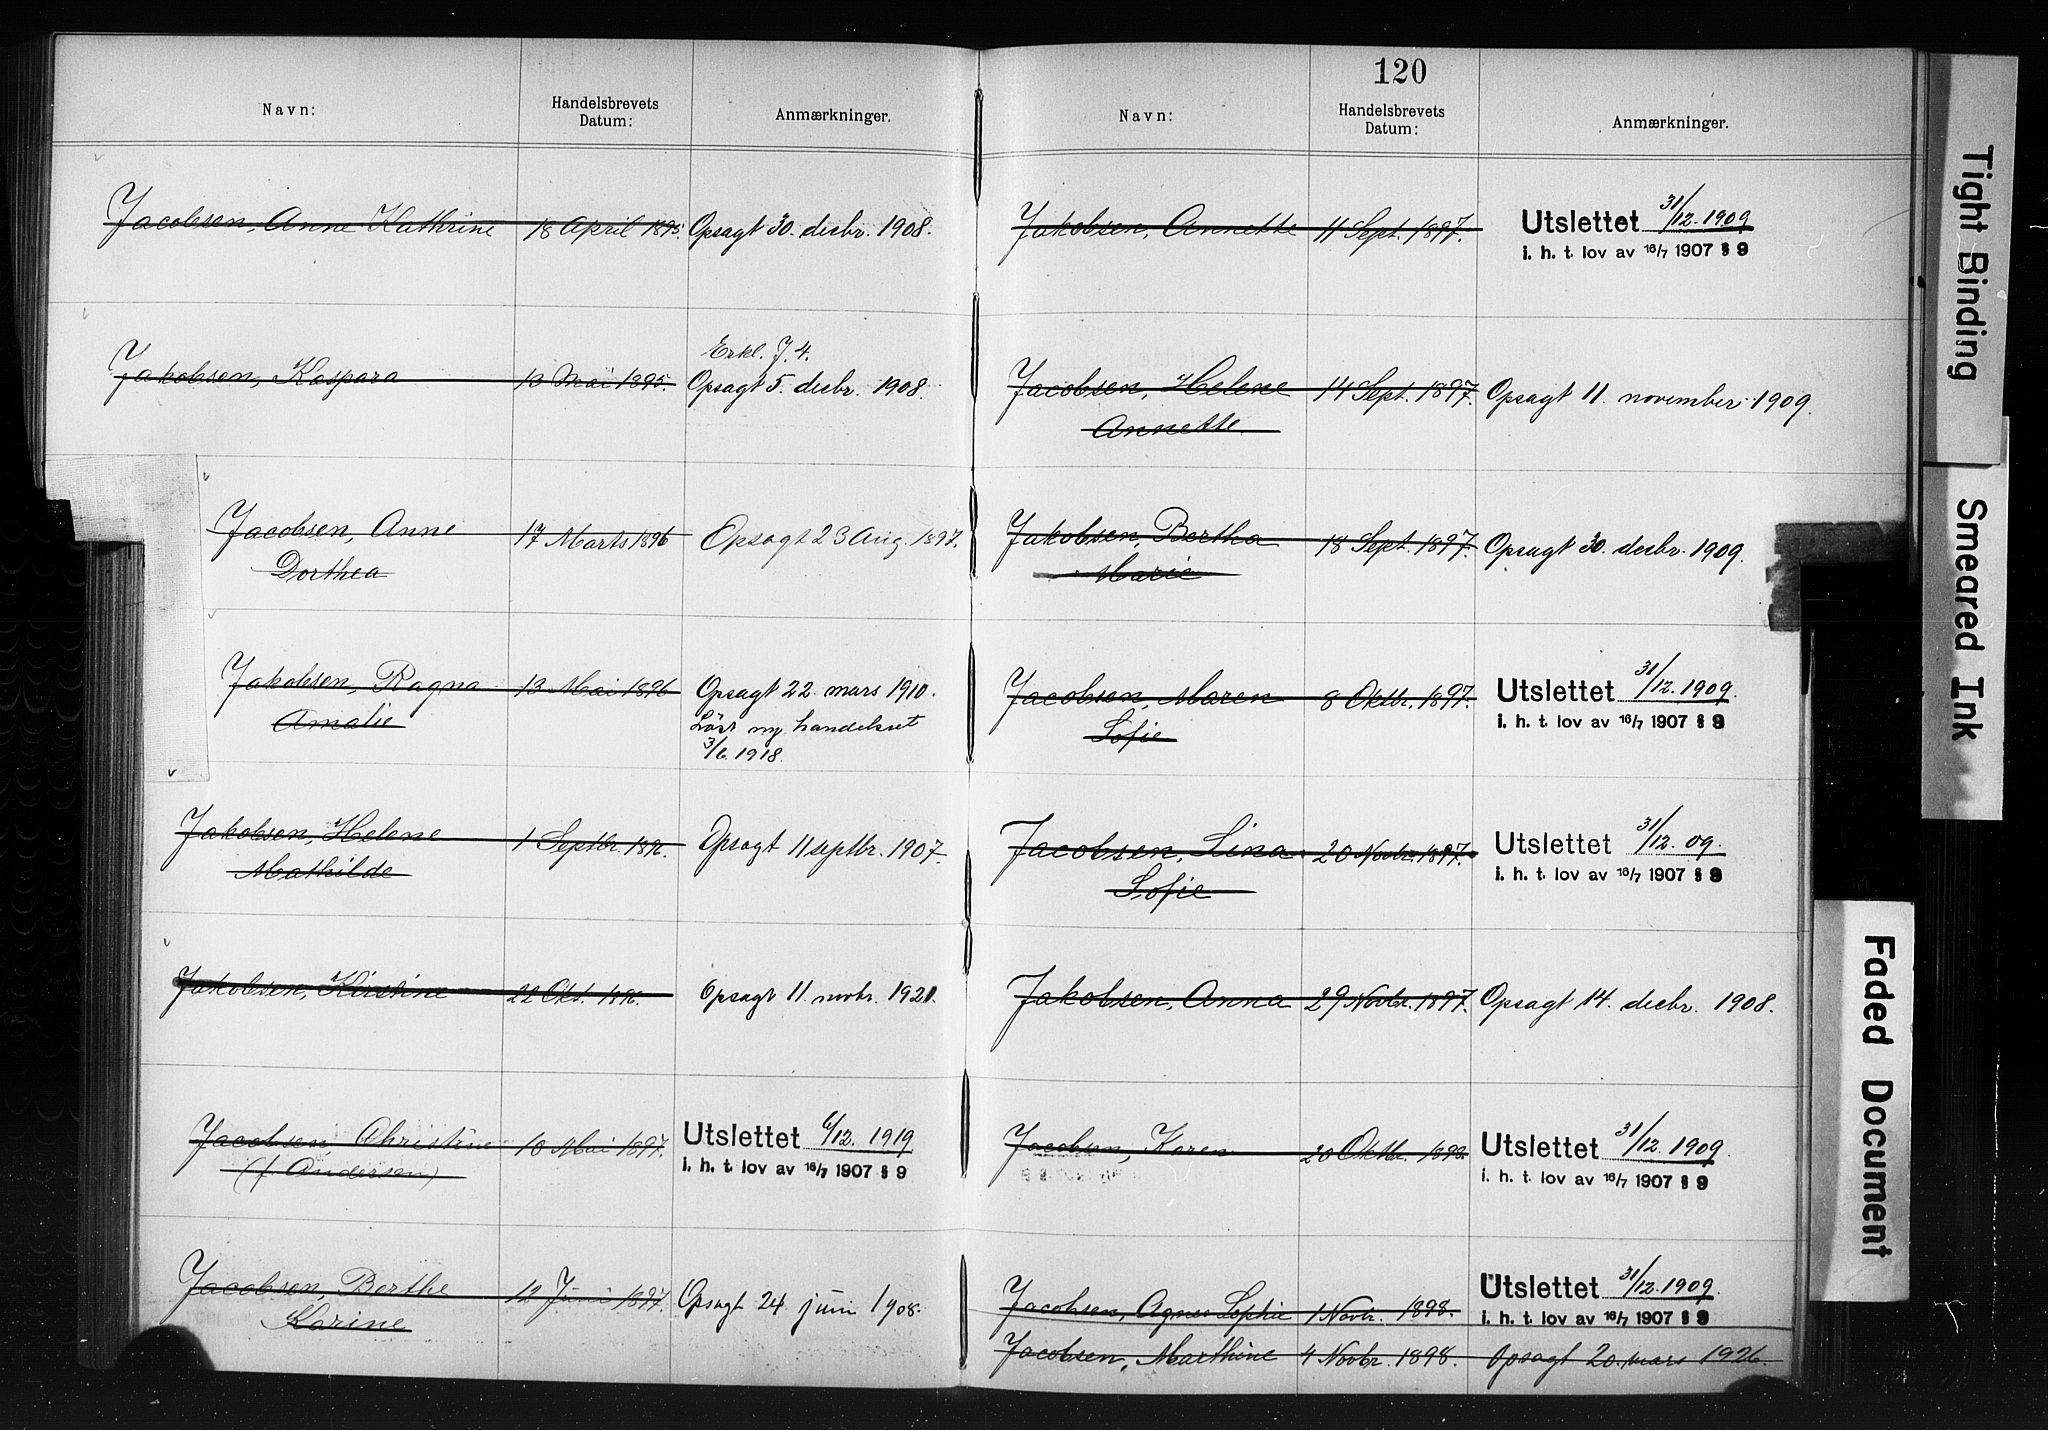 Navn:
Handelsbrevets Datum:
Anmærkninger.
Jacobsen, Anne Kathrine 18 April 1895. Opsagt 30. decbr. 1908.
Erkl. J. 4.
Jakobsen, Kaspara 13 Mai 1895. Opsagt 5. decbr. 1908.
Jacobsen, Anne 17 Marts 1896 Opsagt 23 Aug. 1897.
Dorthea
Jakobsen, Ragna 13 Mai 1896 Opsagt 22. mars 1910.
Amalie Löst ny handelsret
3/6. 1918.
Jakobsen, Helene 1 Septbr. 1896. Opsagt 11 septbr. 1907.
Mathilde
Jakobsen, Kirstine 22 Okt. 1896. Opsagt 11. novbr. 1921.
Jacobsen, Christine 10 Mai 1897. Utslettet 6/12. 1919
(f. Andersen) i. h. t. lov av 16/7 1907 § 9
Jacobsen, Berthe 12 Juni 1897. Opsagt 24 juni 1908.
Karine
120
Navn:
Handelsbrevets Datum:
Anmærkninger.
Jakobsen, Annette 11 Sept. 1897. Utslettet 31/12. 1909
i. h. t. lov av 16/7 1907 § 9
Jacobsen, Helene 14 Sept. 1897. Opsagt 11. november 1909.
Annette
Jakobsen, Bertha 18 Sept. 1897. Opsagt 30. decbr. 1909.
Marie
Jacobsen, Maren 8 Oktbr. 1897. Utslettet 31/12. 1909.
Sofie i. h. t. lov av 16/7 1907 § 9
Jacobsen, Lina 20 Novbr. 1897. Utslettet 31/12. 09.
Sofie i. h. t. lov av 16/7 1907 § 9
Jakobsen, Anna 29 Novbr. 1897. Opsagt 14. decbr. 1908.
Jacobsen, Karen 20 Oktbr. 1898. Utslettet 31/12. 1909.
i. h. t. lov av 16/7 1907 § 9
Jacobsen, Agnes Sophie 1 Novbr. 1898. Utslettet 31/12. 1909.
i. h. t. lov av 16/7 1907 § 9
Jacobsen, Marthine 4 Novbr. 1898. Opsagt 20. mars 1926.
Tight Binding
Smeared Ink
Faded Document